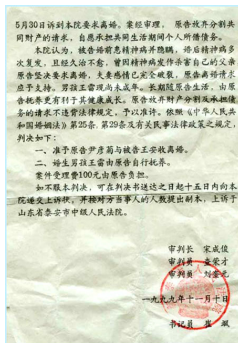 5月30日诉到本院要求离婚。案经审理，原告放弃分割共
同财产的请求，自愿承担共同生活期间个人所借债务。
本院认为，被告婚前患精神病并隐瞒，婚后精神病多
次复发，且经久治不愈，曾因精神病发作杀害自己的父亲
原告坚决要求离婚，夫妻感情已完全破裂，原告离婚请求
应予支持。男孩王雷现尚未成年。长期随原告生活，由原
告抚养更有利于其健康成长。原告放弃财产分割及承担债
务的请求不违背法律规定，予以准许。依照《中华人民共
和国婚姻法》第25条、第29条及有关民事法律政策之规定，
判决如下：
一、准予原告尹彦菊与被告王安收离婚。
二、婚生男孩王雷由原告自行抚养。
案件受理费100元由原告负担。
如不服本判决，可在判决书送达之日起十五日内向本
院递交上诉状，并按对方当事人的人数提出副本，上诉于
山东省泰安市中级人民法院。
审判长 宋成俊
审判员 荣才
审判员 刘
一九九九年十一月十日
书记员 崔